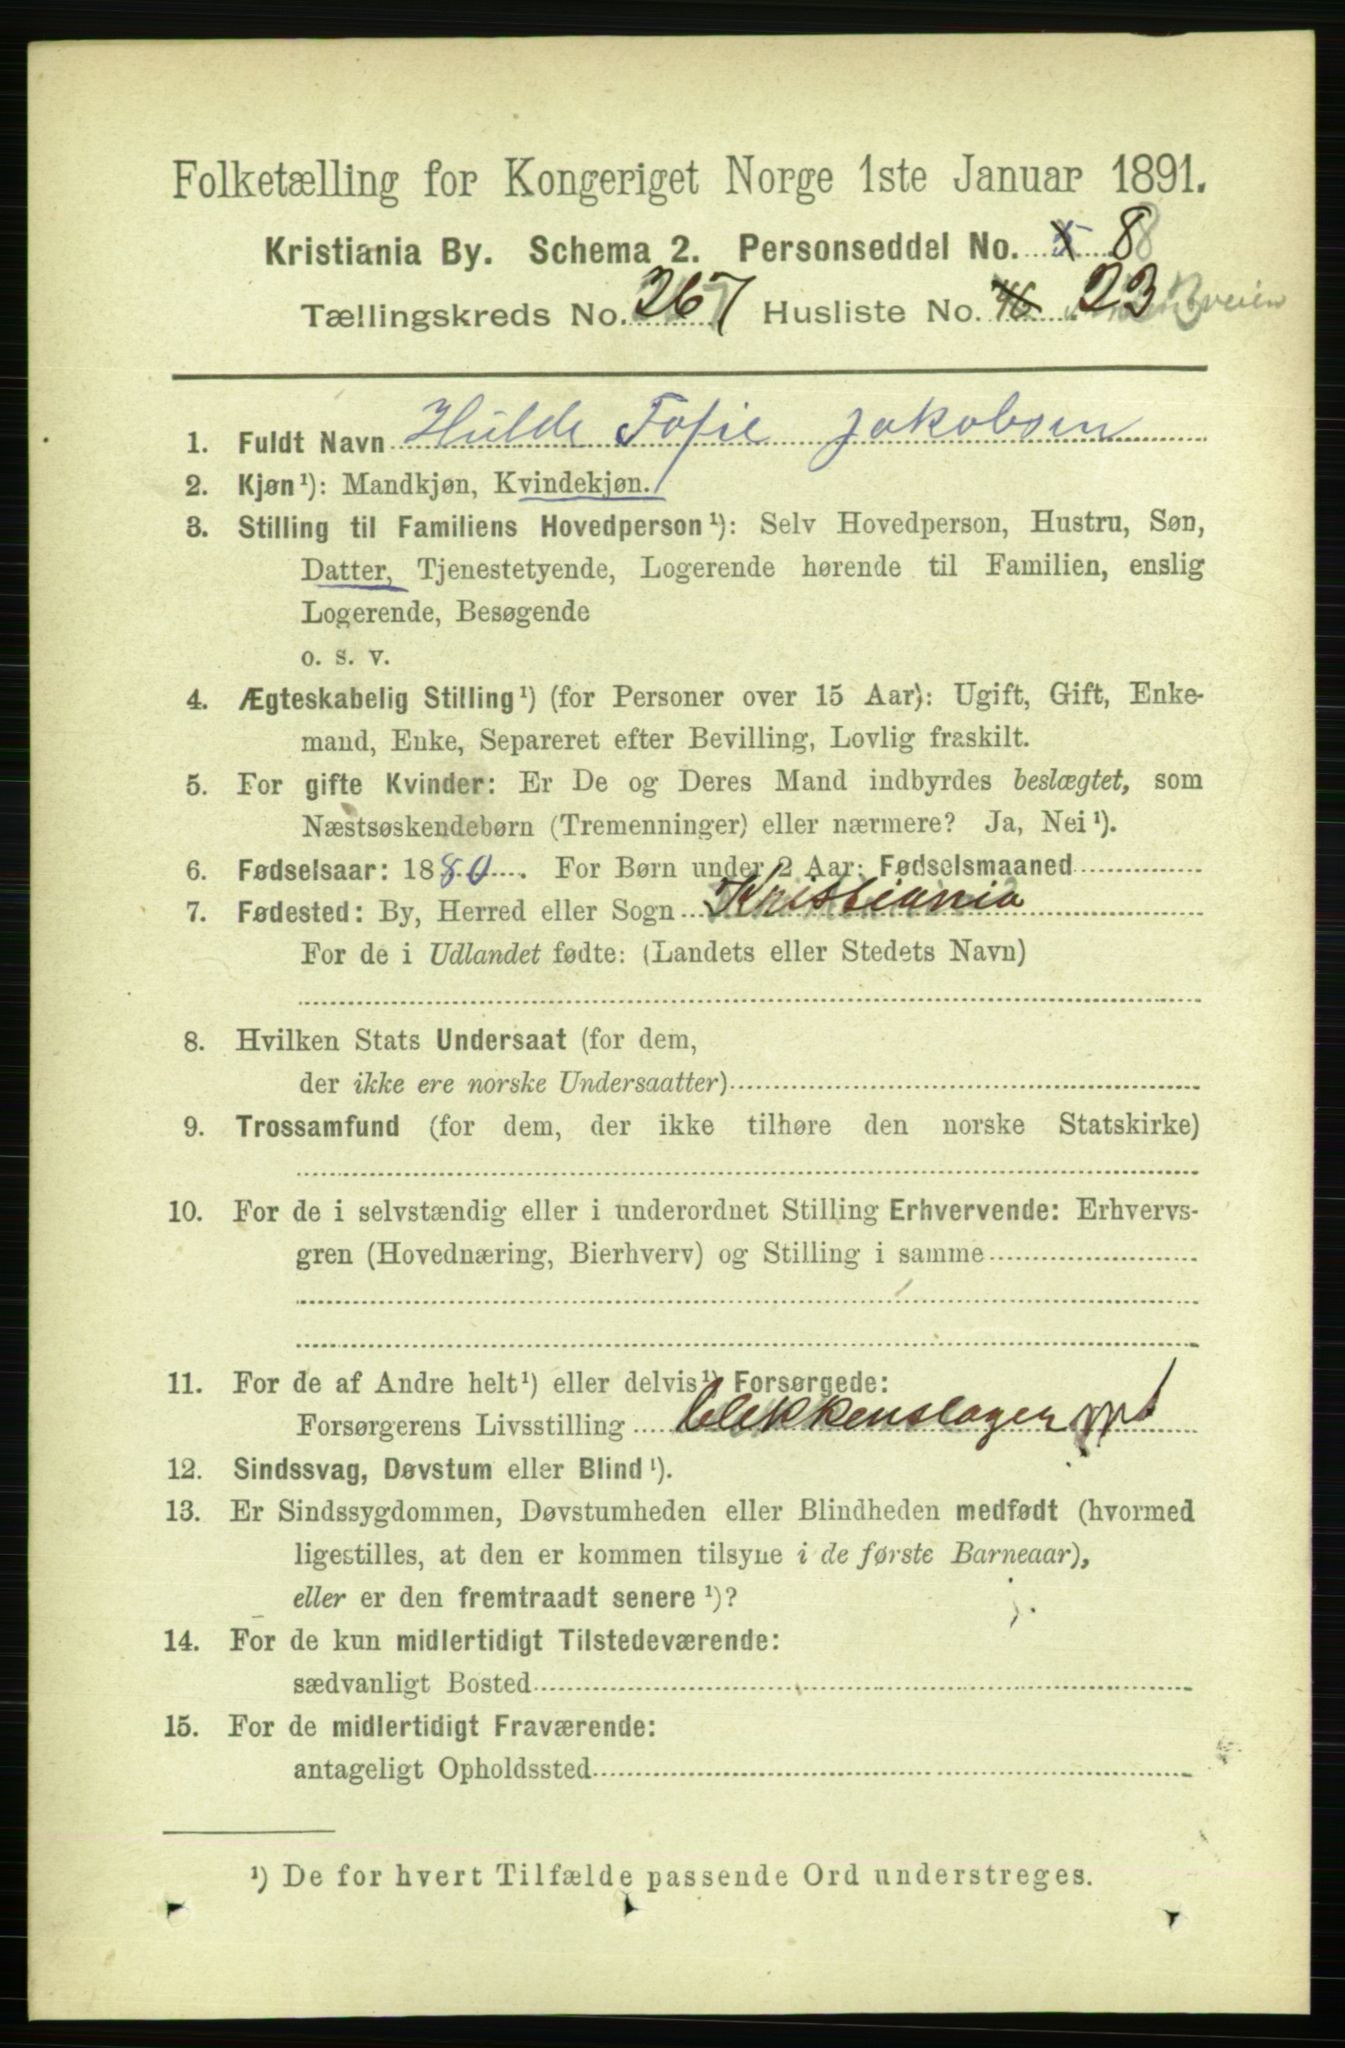 Folketælling for Kongeriget Norge 1ste Januar 1891.
Kristiania By. Schema 2. Personseddel No. 8
Tællingskreds No. 267 Husliste No. 23
1. Fuldt Navn Hulde Sofie Jakobsen
2. Kjøn¹): Mandkjøn, Kvindekjøn.
3. Stilling til Familiens Hovedperson¹): Selv Hovedperson, Hustru, Søn,
Datter, Tjenestetyende, Logerende hørende til Familien, enslig
Logerende, Besøgende
o. s. v.
4. Ægteskabelig Stilling¹) (for Personer over 15 Aar): Ugift, Gift, Enke-
mand, Enke, Separeret efter Bevilling, Lovlig fraskilt.
5. For gifte Kvinder: Er De og Deres Mand indbyrdes beslægtet, som
Næstsøskendebørn (Tremenninger) eller nærmere? Ja, Nei¹).
6. Fødselsaar: 1880. For Børn under 2 Aar: Fødselsmaaned
7. Fødested: By, Herred eller Sogn Kristiania
For de i Udlandet fødte: (Landets eller Stedets Navn)
8. Hvilken Stats Undersaat (for dem,
der ikke ere norske Undersaatter)
9. Trossamfund (for dem, der ikke tilhøre den norske Statskirke)
10. For de i selvstændig eller i underordnet Stilling Erhvervende: Erhvervs-
gren (Hovednæring, Bierhverv) og Stilling i samme
11. For de af Andre helt¹) eller delvis¹) Forsørgede:
Forsørgerens Livsstilling blekkenslager
12. Sindssvag, Døvstum eller Blind¹).
13. Er Sindssygdommen, Døvstumheden eller Blindheden medfødt (hvormed
ligestilles, at den er kommen tilsyne i de første Barneaar),
eller er den fremtraadt senere¹)?
14. For de kun midlertidigt Tilstedeværende:
sædvanligt Bosted
15. For de midlertidigt Fraværende:
antageligt Opholdssted
¹) De for hvert Tilfælde passende Ord understreges.